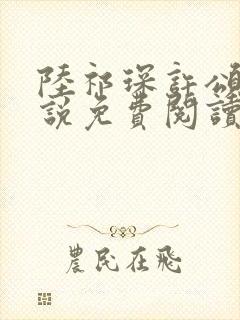 陸祁琛許頌
說免費閱讀
農民在飛